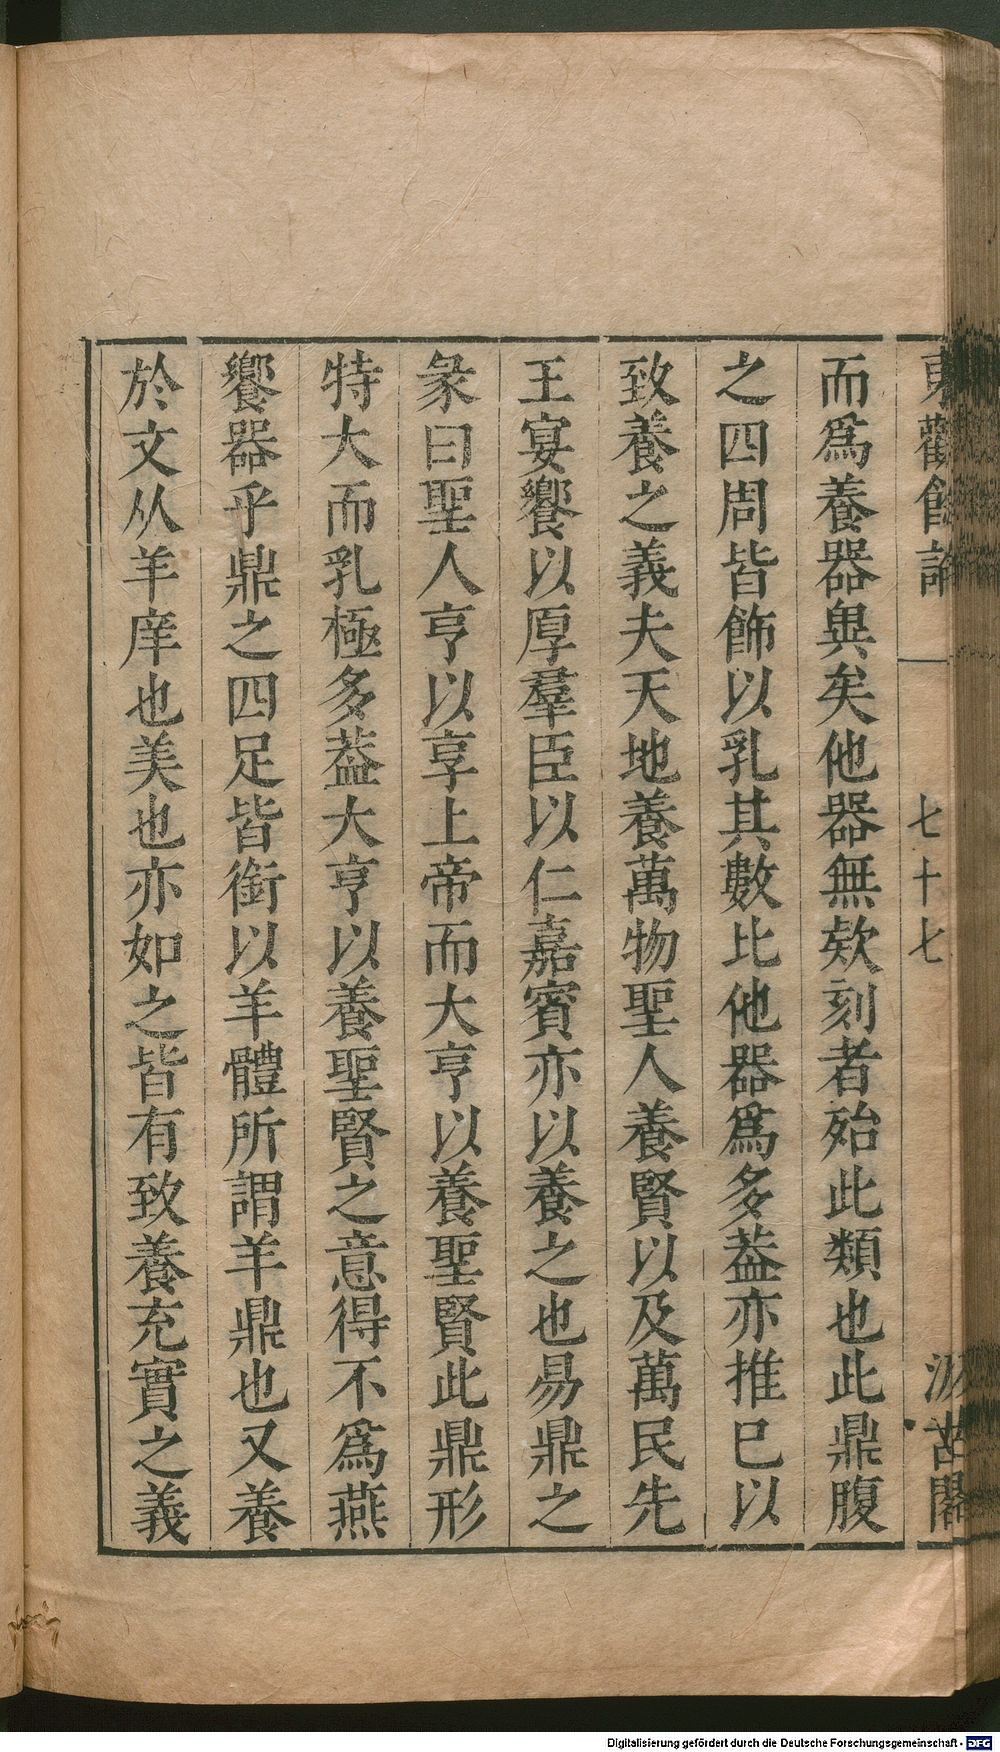 東觀餘論
七十七
汲古閣
而爲養器與矣他器無欵刻者殆此類也此鼎腹
之四周皆飾以乳其數比他器爲多葢亦推已以
致養之義夫天地養萬物聖人養賢以及萬民先
王宴饗以厚羣臣以仁嘉賓亦以養之也易鼎之
彖曰聖人亨以享上帝而大亨以養聖賢此鼎形
特大而乳極多葢大亨以養聖賢之意得不爲燕
饗器乎鼎之四足皆銜以羊體所謂羊鼎也又養
於文从羊庠也美也亦如之皆有致養充實之義
Digitalisierung gefördert durch die Deutsche Forschungsgemeinschaft - DFG